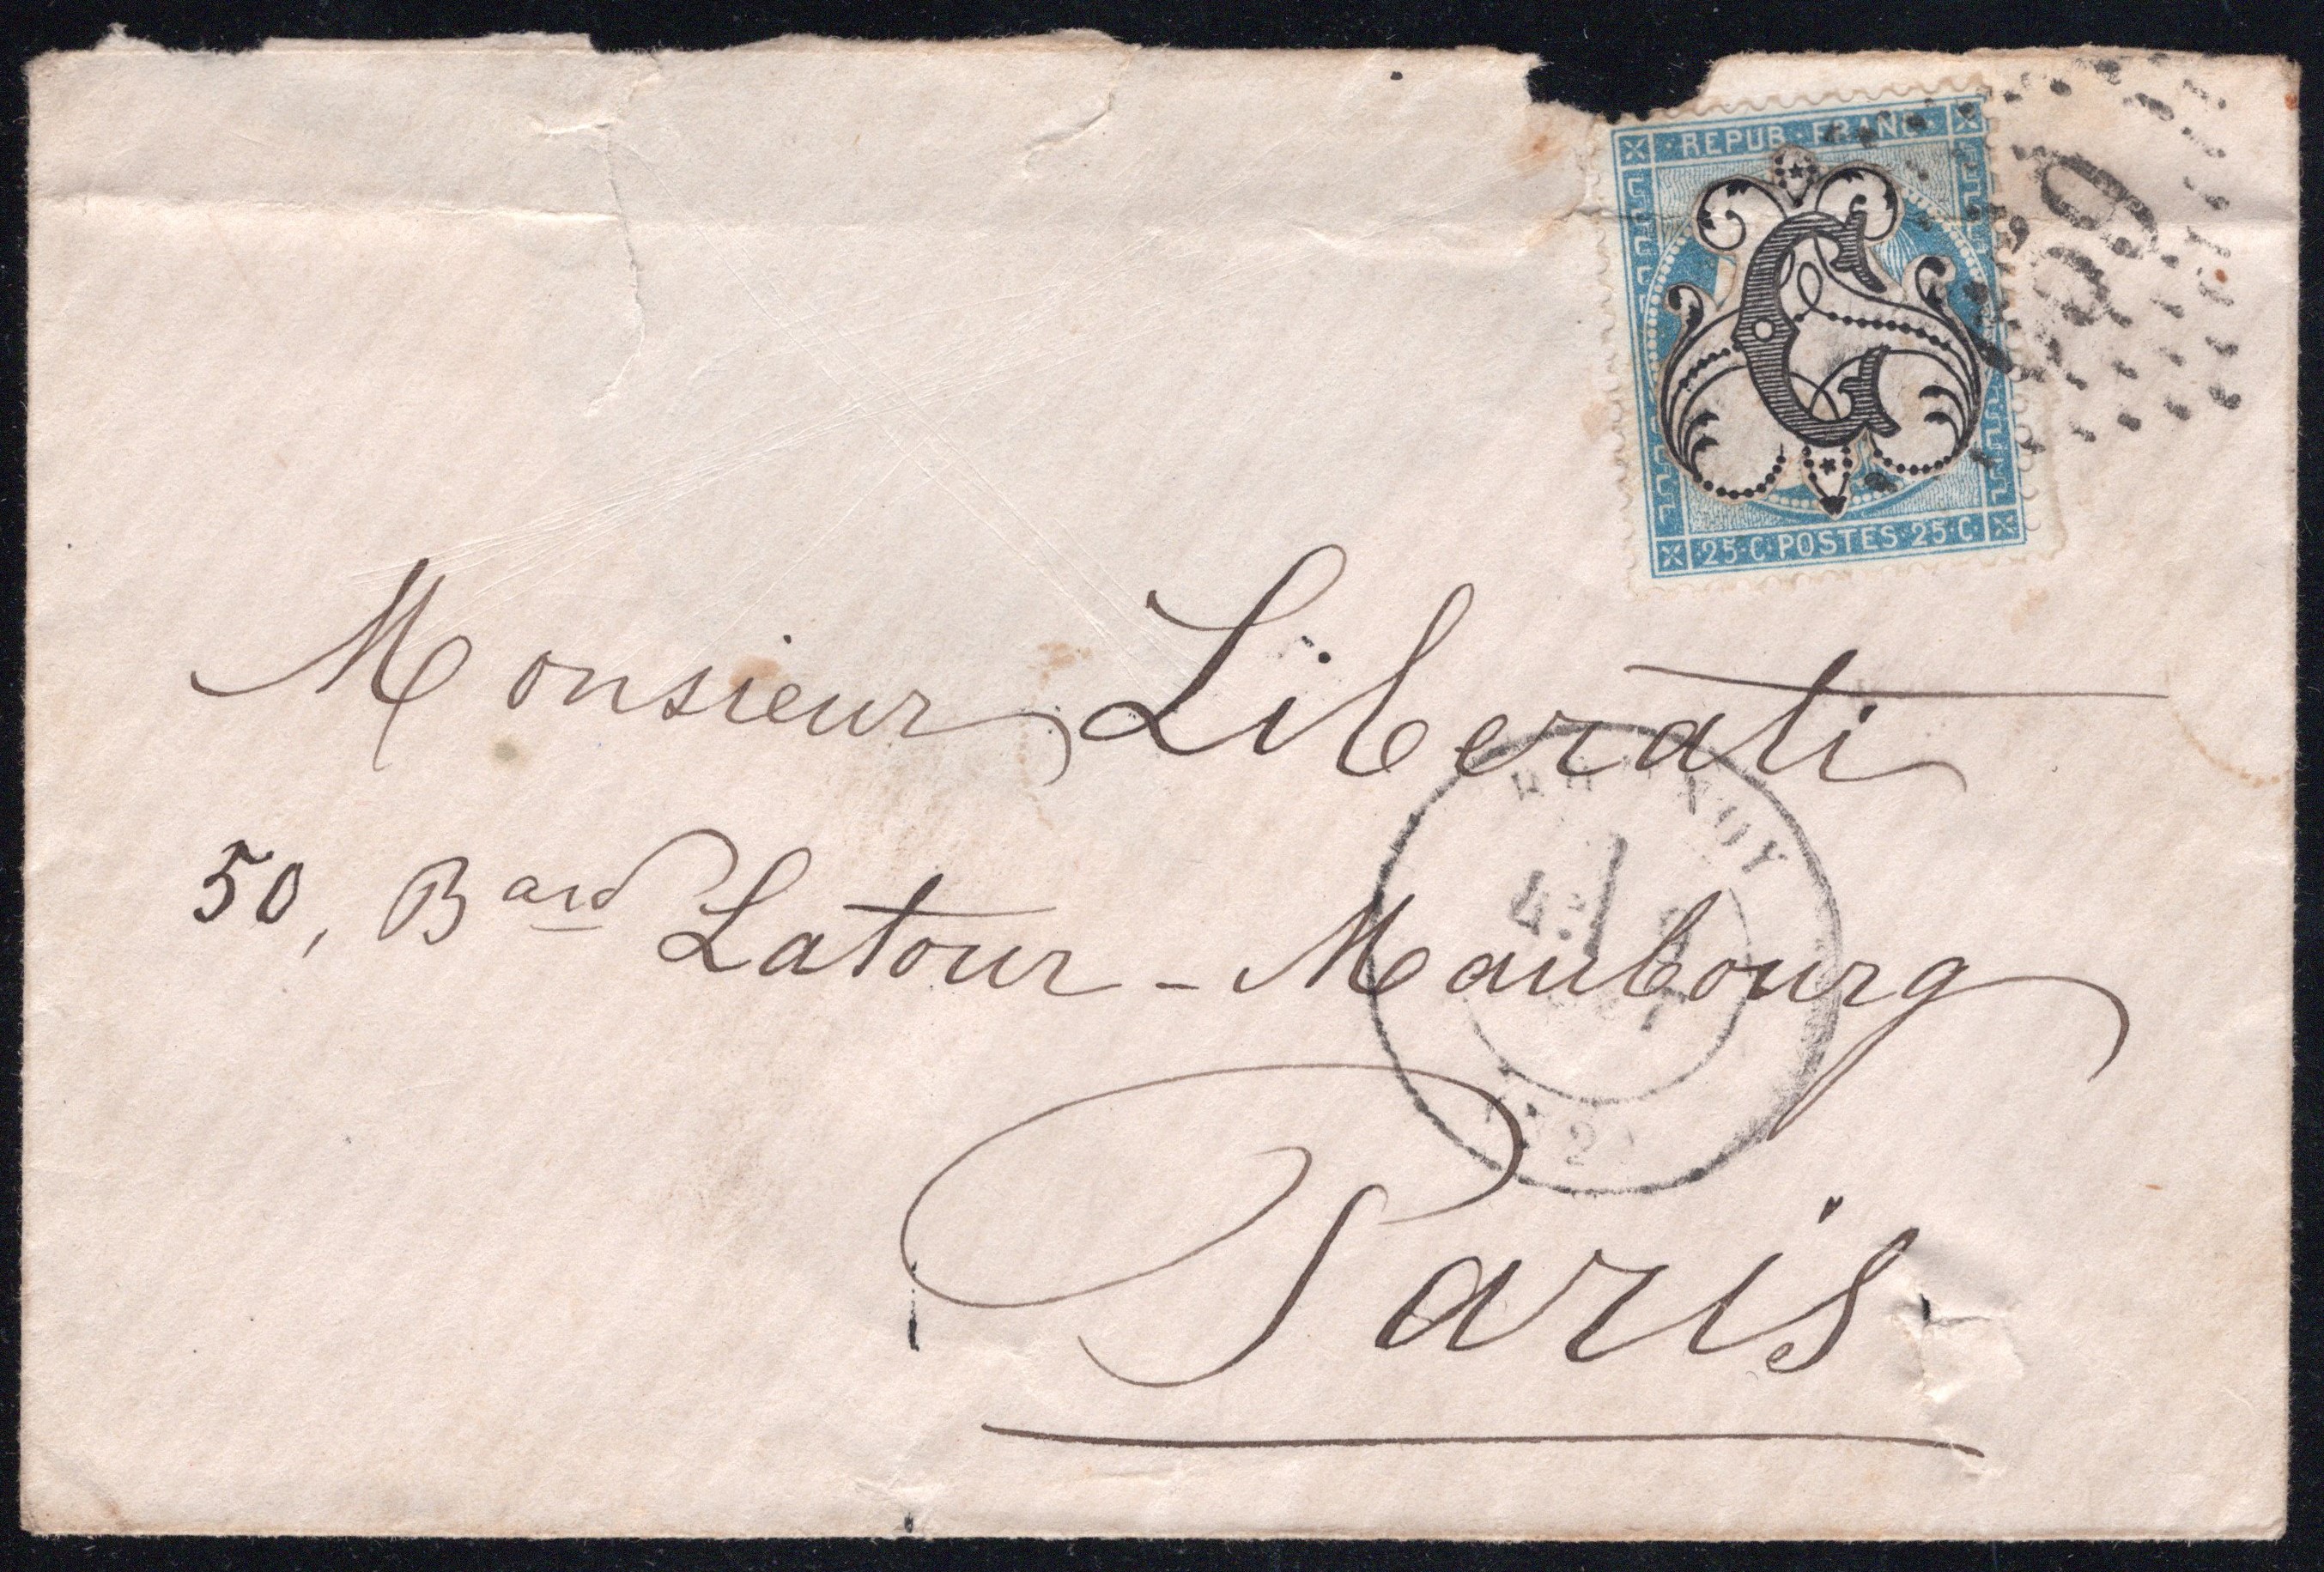 REPUB·FRANC·
G
25·C·POSTES·25·C·
Monsieur Liberati
50, Bard Latour-Maubourg
Paris